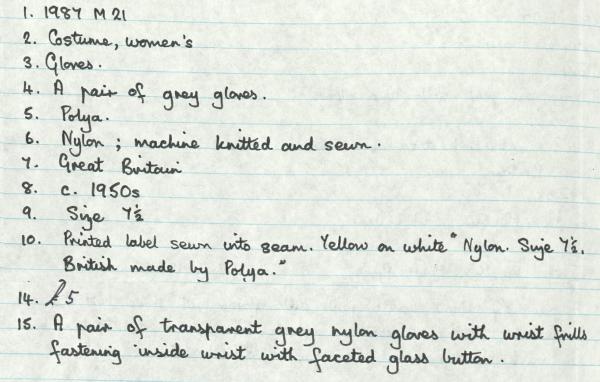 1. 1987 M 21
2. Costume, women's
3. Gloves.
4. A pair of grey gloves.
5. Polya.
6. Nylon ; machine knitted and sewn.
7. Great Britain
8. c. 1950s
9. Size 7½
10. Printed label sewn into seam. Yellow on white "Nylon. Size 7½.
British made by Polya."
14. £5
15. A pair of transparent grey nylon gloves with wrist frills
fastening inside wrist with faceted glass button.